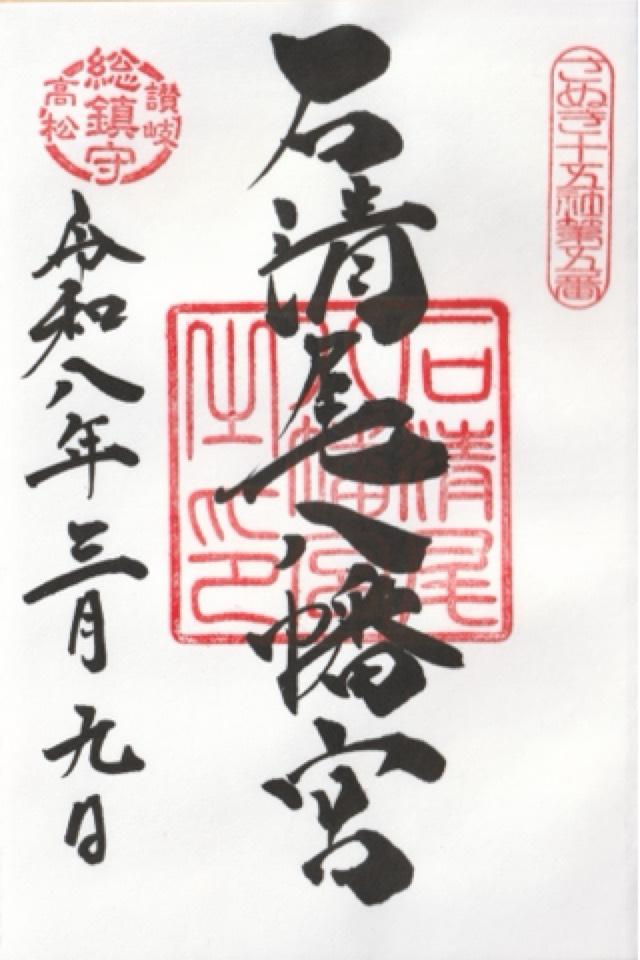 さぬき十五社第五番
石清尾八幡宮
石清尾
八幡宮
之印
讃岐
総鎮守
高松
令和八年三月九日